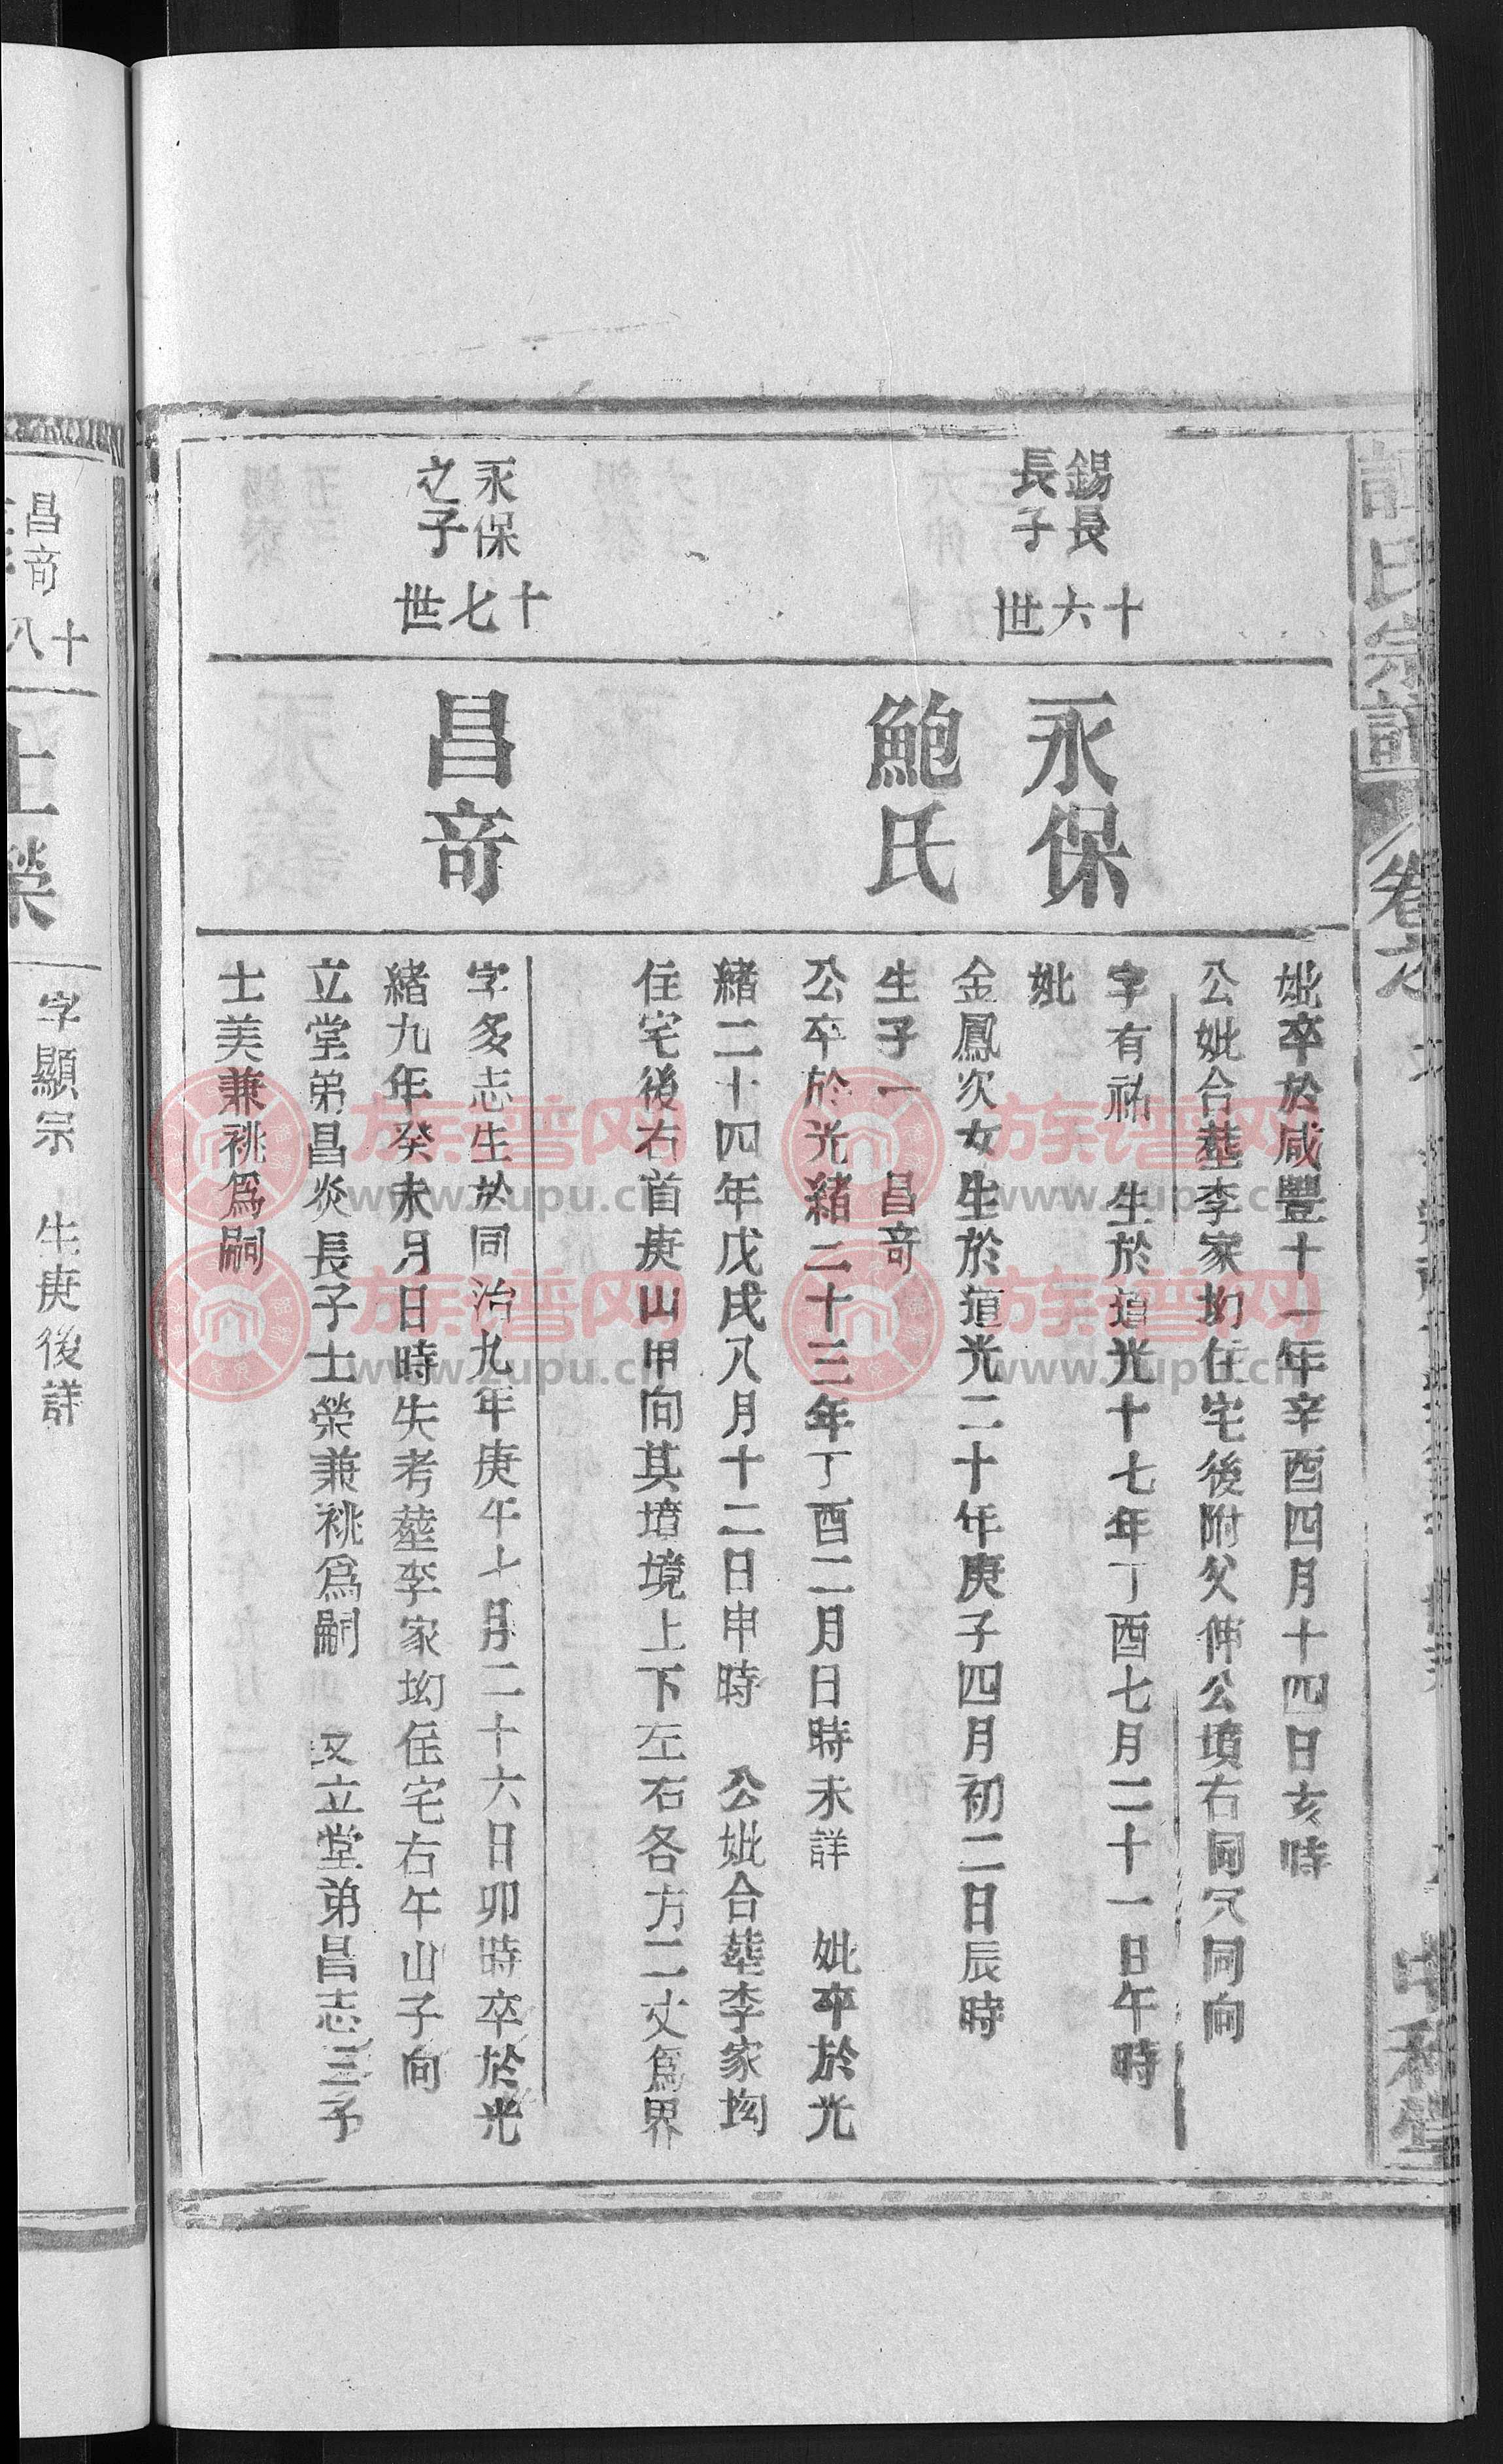 氏宗譜 卷
中和堂
妣卒於咸豐十一年辛酉四月十四日亥時
公妣合塟李家坳住宅後附父伸公墳右同穴同向
錫長
長子
十六世
永保
字有祐 生於道光十七年丁酉七月二十一日午時
妣
鮑氏
金鳳次女生於道光二十年庚子四月初二日辰時
生子一 昌竒
公卒於光緒二十三年丁酉二月日時未詳 妣卒於光
緒二十四年戊戌八月十二日申時 公妣合塟李家坳
住宅後右首庚山甲向其墳境上下左右各方二丈爲界
永保
之子
十七世
昌竒
字多志生於同治九年庚午七月二十六日卯時卒於光
緒九年癸未月日時失考塟李家坳住宅右午山子向
立堂弟昌炎長子士榮兼祧爲嗣 又立堂弟昌志三子
士美兼祧爲嗣
昌竒
十八
士榮
字顯宗 生庚後詳
族谱网
www.zupu.cn
族谱网
www.zupu.cn
族谱网
www.zupu.cn
族谱网
www.zupu.cn